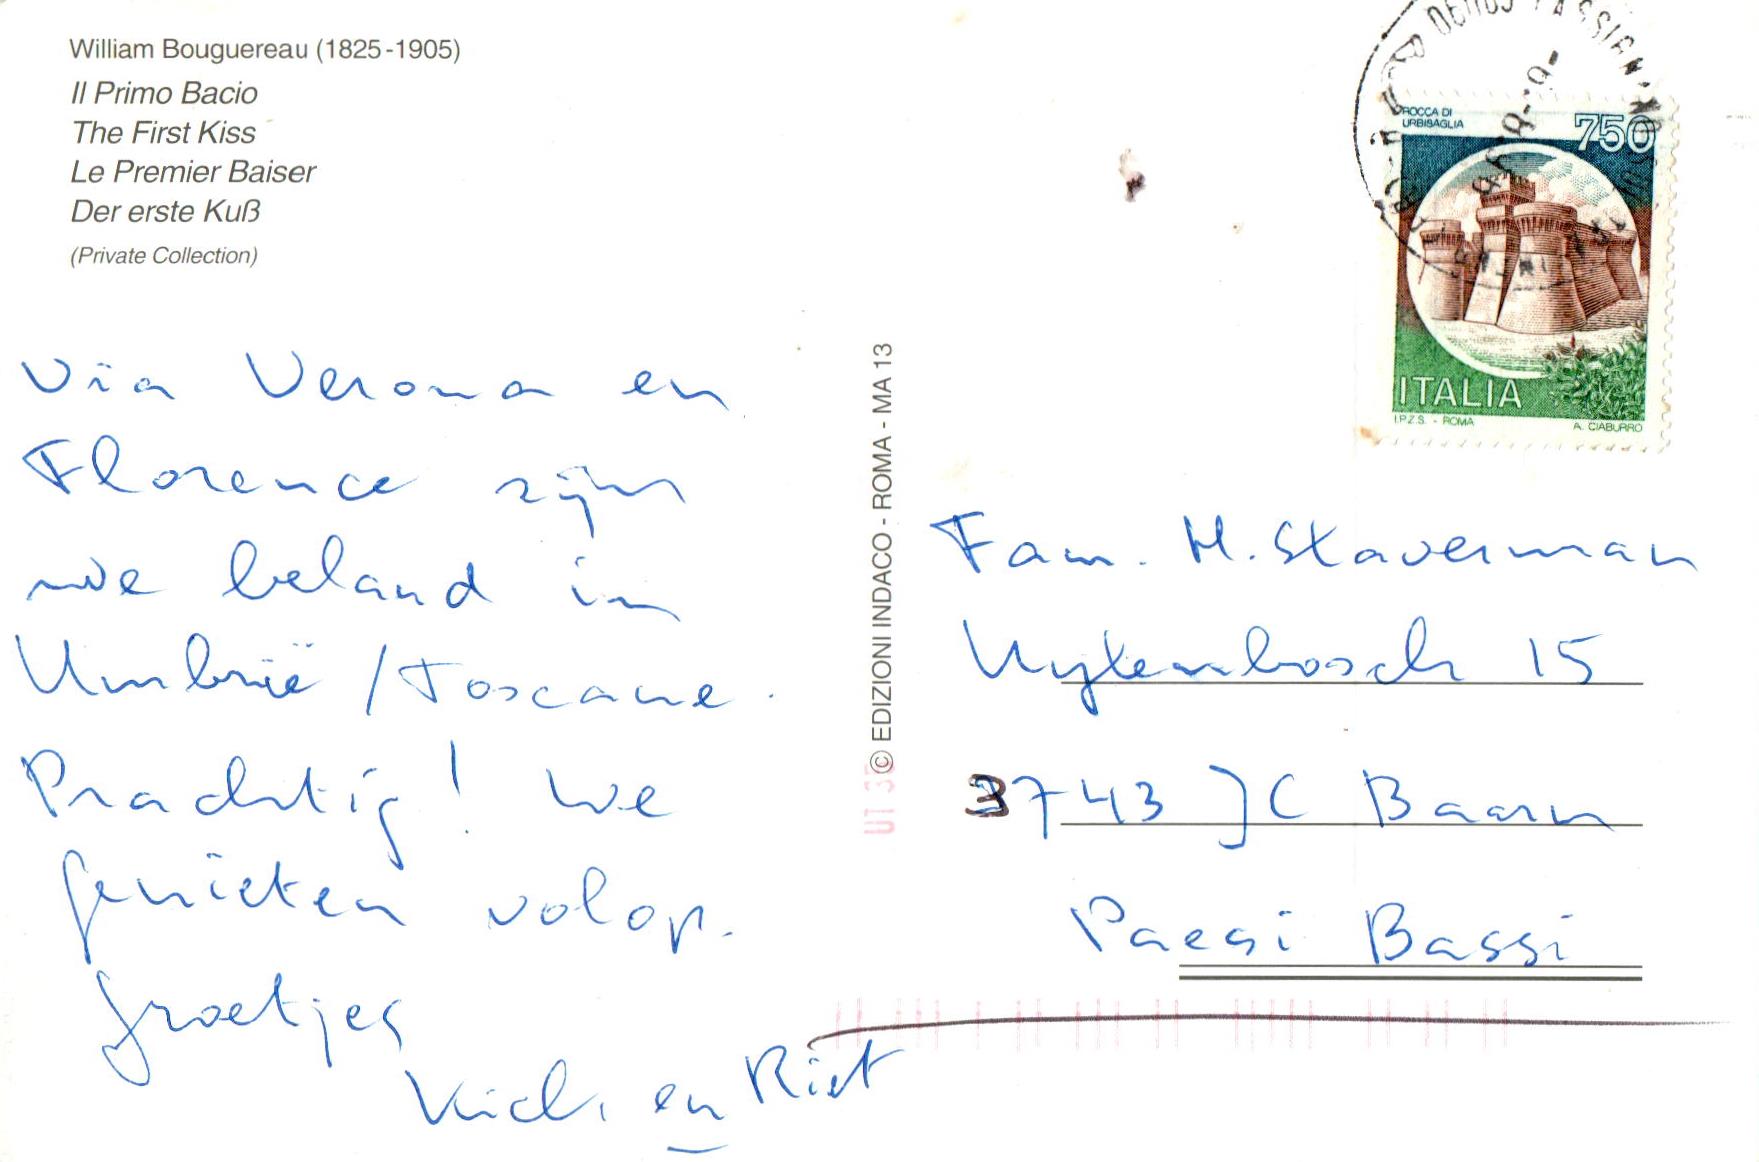 William Bouguereau (1825-1905)
Il Primo Bacio
The First Kiss
Le Premier Baiser
Der erste Kuß
(Private Collection)
Via Verona en
Florence zijn
we beland in
Umbrië / Toscane.
Prachtig! We
genieten volop.
Groetjes
en Riet
© EDIZIONI INDACO - ROMA - MA 13
UT 35
ROCCA DI
URBISAGLIA
750
ITALIA
I.P.Z.S. - ROMA
A. CIABURRO
Fam. H. Staverman
Uytenbosch 15
3743 JC Baarn
Paesi Bassi